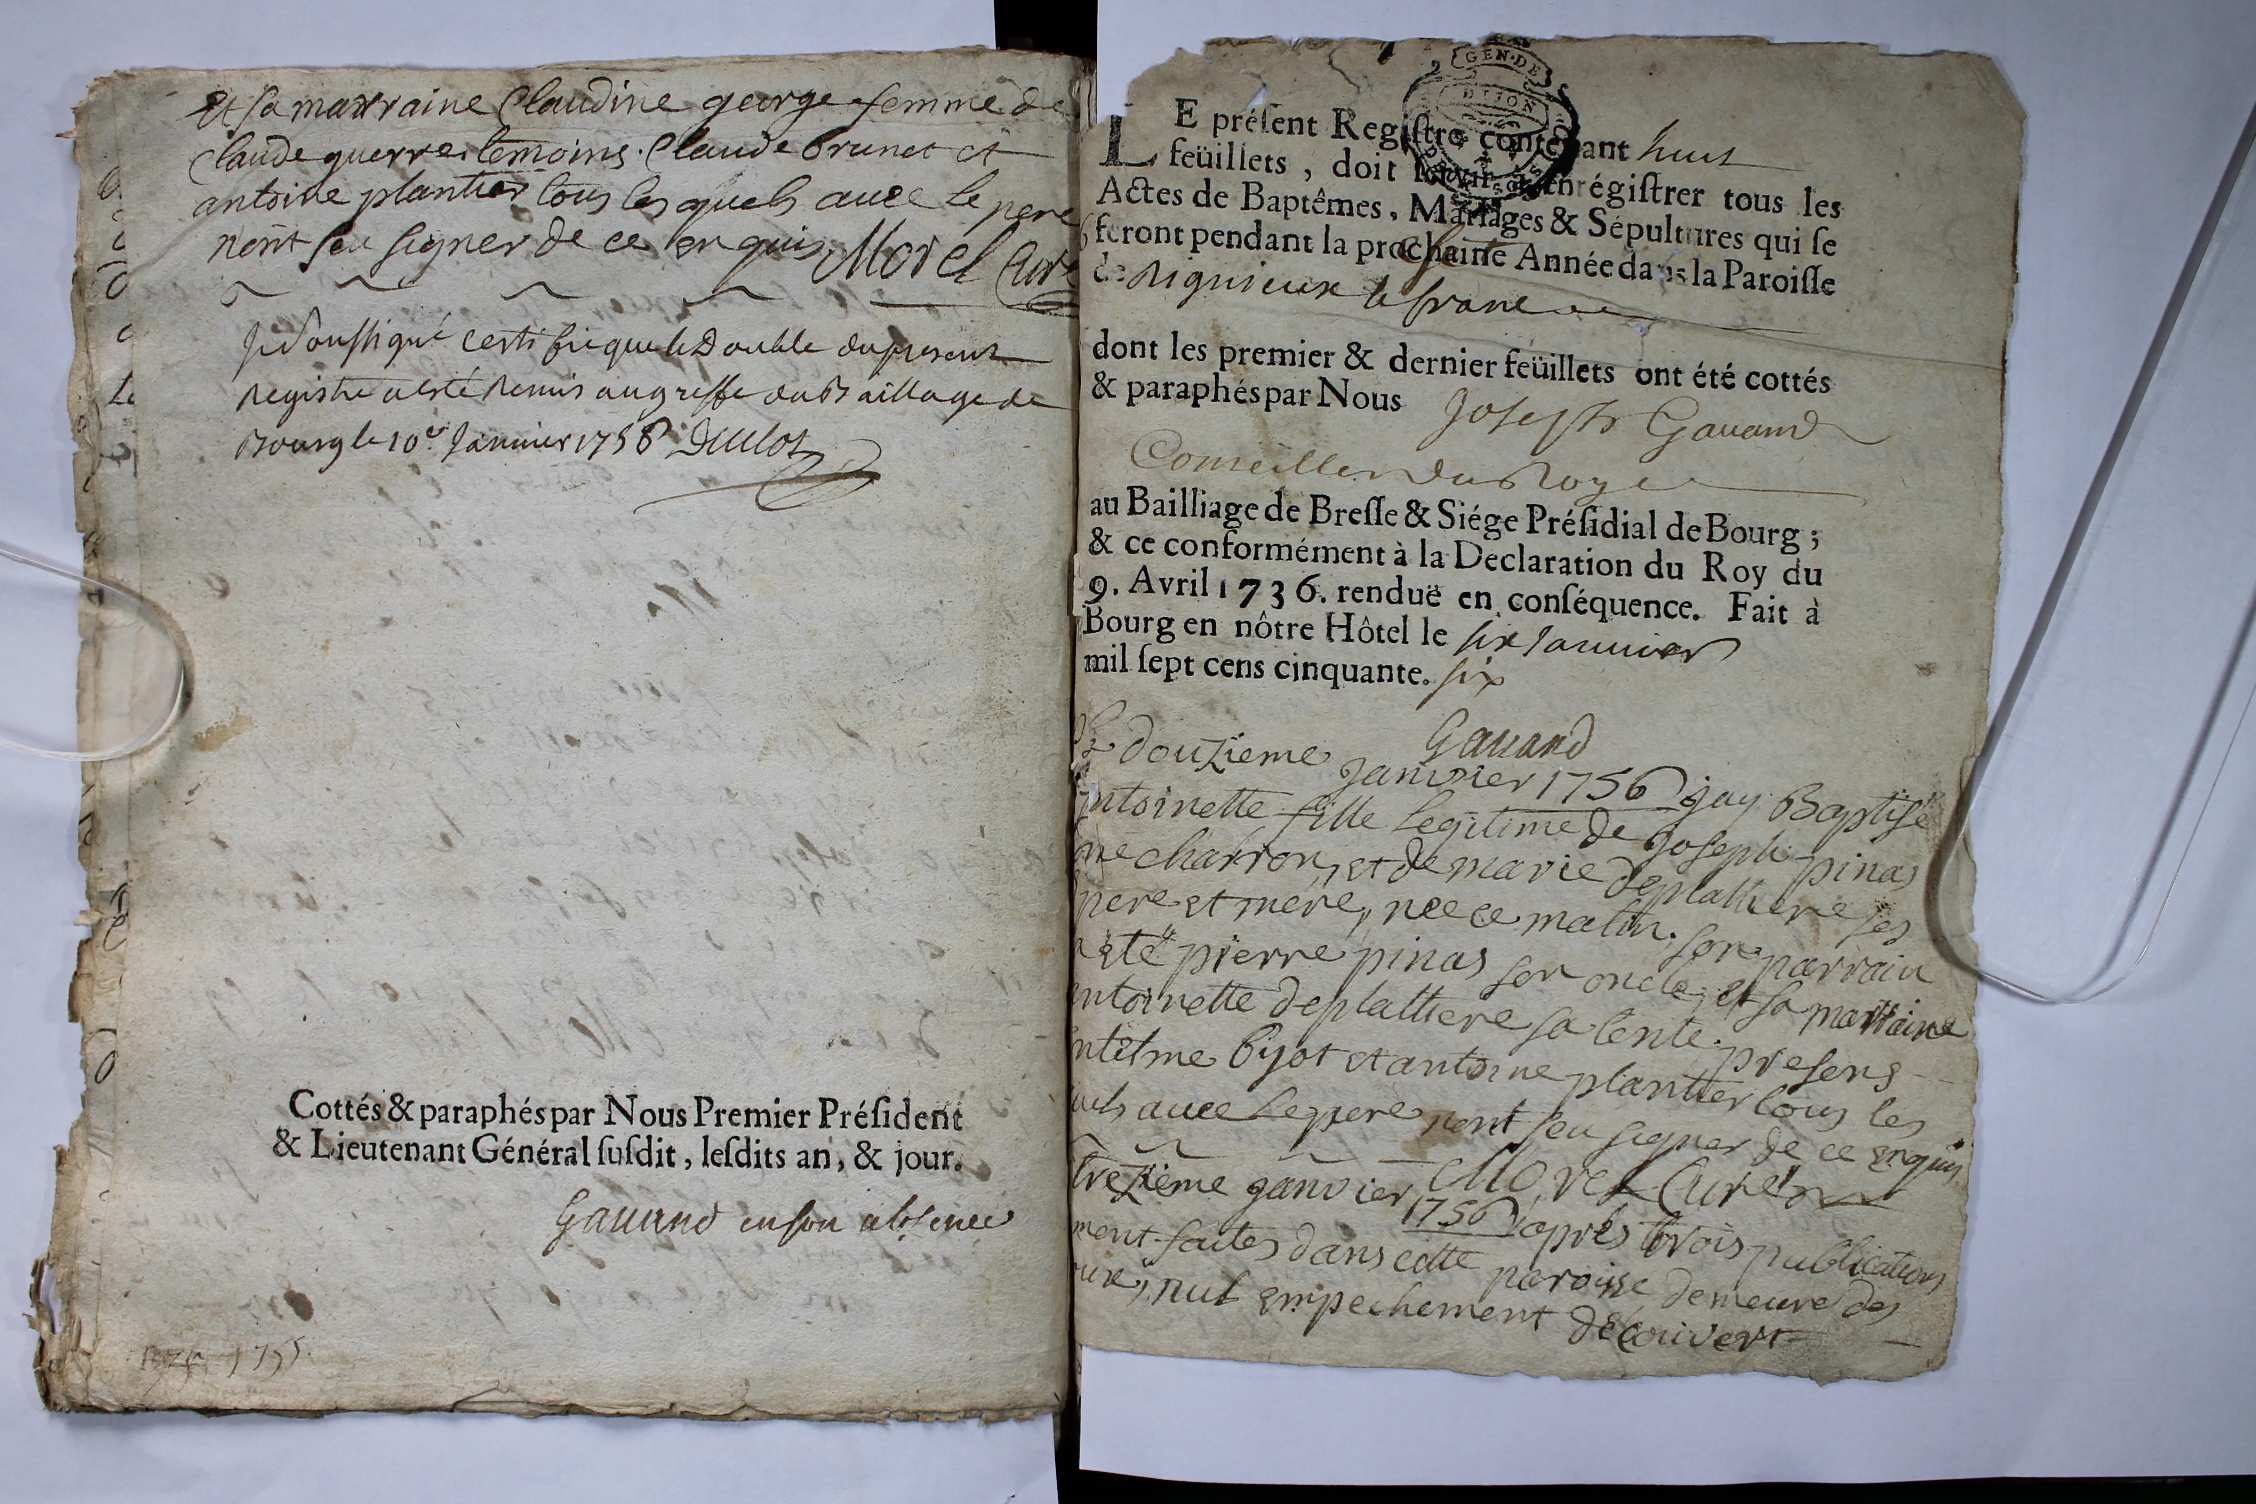 Et sa marraine Claudine george femme de
Claude guerre. temoins. Claude Brunet et
antoine plantier tous lesquels avec le pere
nont seu signer de ce enquis. Morel Curé
Je soussigné certifie que le Double du present
Registre a esté Remis au greffe du Bailliage de
Bourg le 10e. Janvier 1756
Cottés & paraphés par Nous Premier Préſident
& Lieutenant Général ſuſdit, leſdits an, & jour.
Gauand en son absence
1755
GEN. DE
DIJON
LE préſent Regiſtre contenant huit
feüillets, doit ſervir à enrégiſtrer tous les
Actes de Baptêmes, Mariages & Sépultures qui ſe
feront pendant la prochaine Année dans la Paroiſſe
de Rignieux le franc
dont les premier & dernier feüillets ont été cottés
& paraphés par Nous Joseph Gauand
Conseiller du Roy
au Bailliage de Breſſe & Siége Préſidial de Bourg ;
& ce conformément à la Declaration du Roy du
9. Avril 1736. renduë en conſéquence. Fait à
Bourg en nôtre Hôtel le six Janvier
mil ſept cens cinquante. six
Gauand
Le douzieme Janvier 1756 jay Baptisé
antoinette fille legitime de Joseph pinas
charron, et de marie deplattiere ses
pere et mere, nee ce matin. son parrain
a été pierre pinas son oncle, et sa marraine
antoinette deplattiere sa tente. presens
antelme Bijot et antoine plantier tous les
quels avec le pere nont seu signer de ce enquis
Morel Curé
treizieme janvier 1756 après trois publications
ment faites dans cette paroisse demeure des
nul empechement découvert